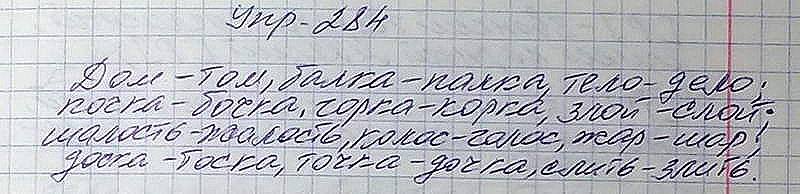 Упр. 284
Дом - том, балка - палка, тело - дело;
почка - бочка, горка - корка, злой - слой;
шалость - жалость, колос - голос, жар - шар;
доска - тоска, точка - дочка, слить - злить.